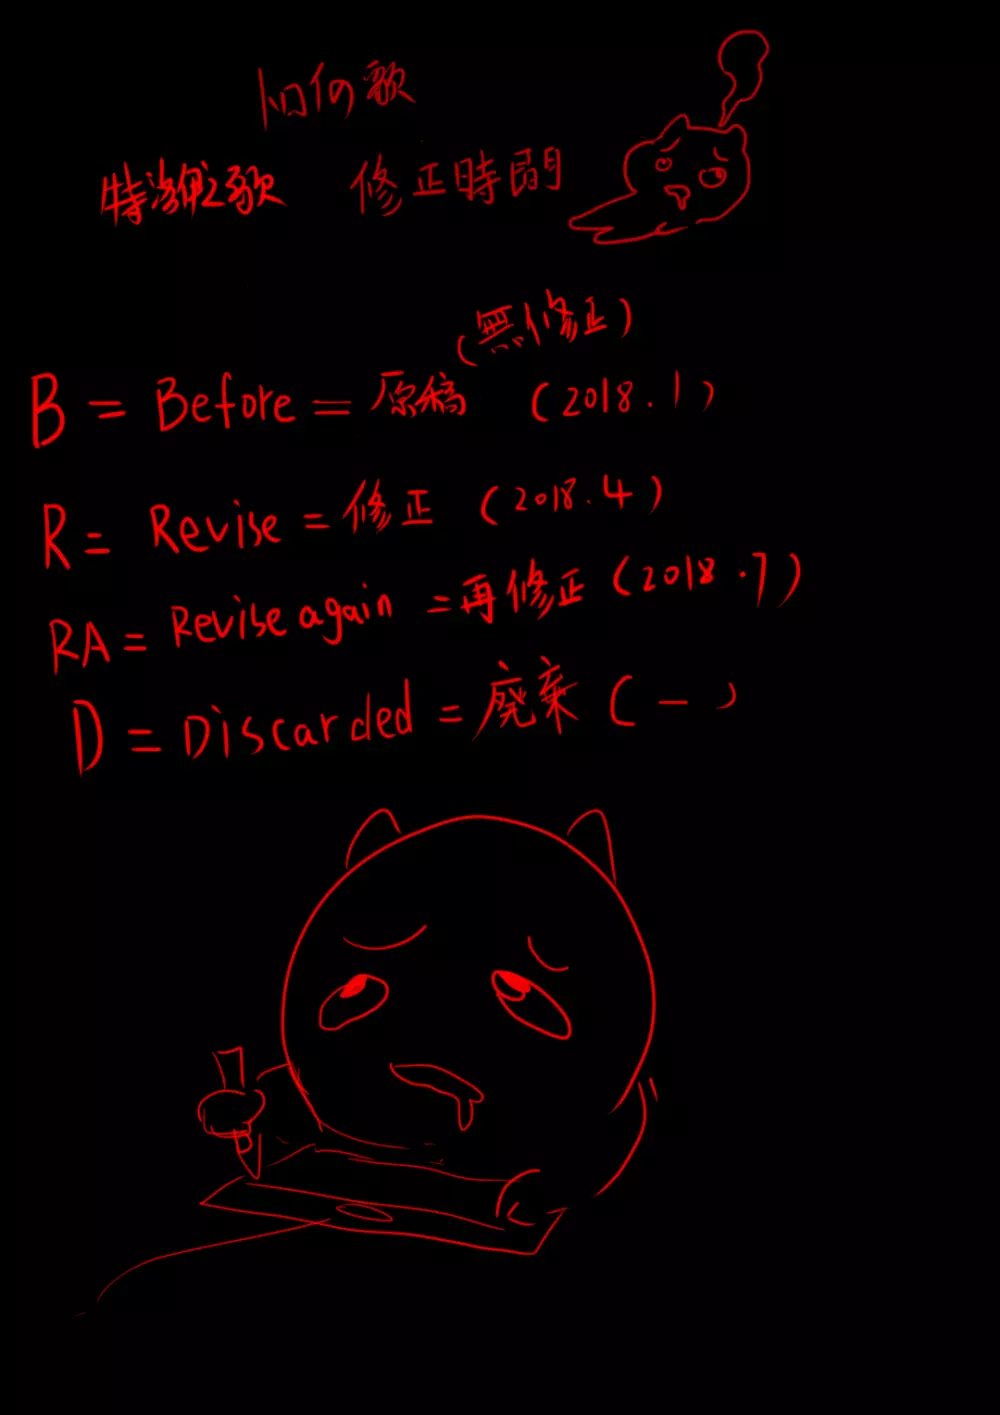 何歌
特之歌 修正時間
(無修正)
B = Before = 原稿 (2018.1)
R = Revise = 修正 (2018.4)
RA = Revise again = 再修正 (2018.7)
D = Discarded = 廃棄 (-)